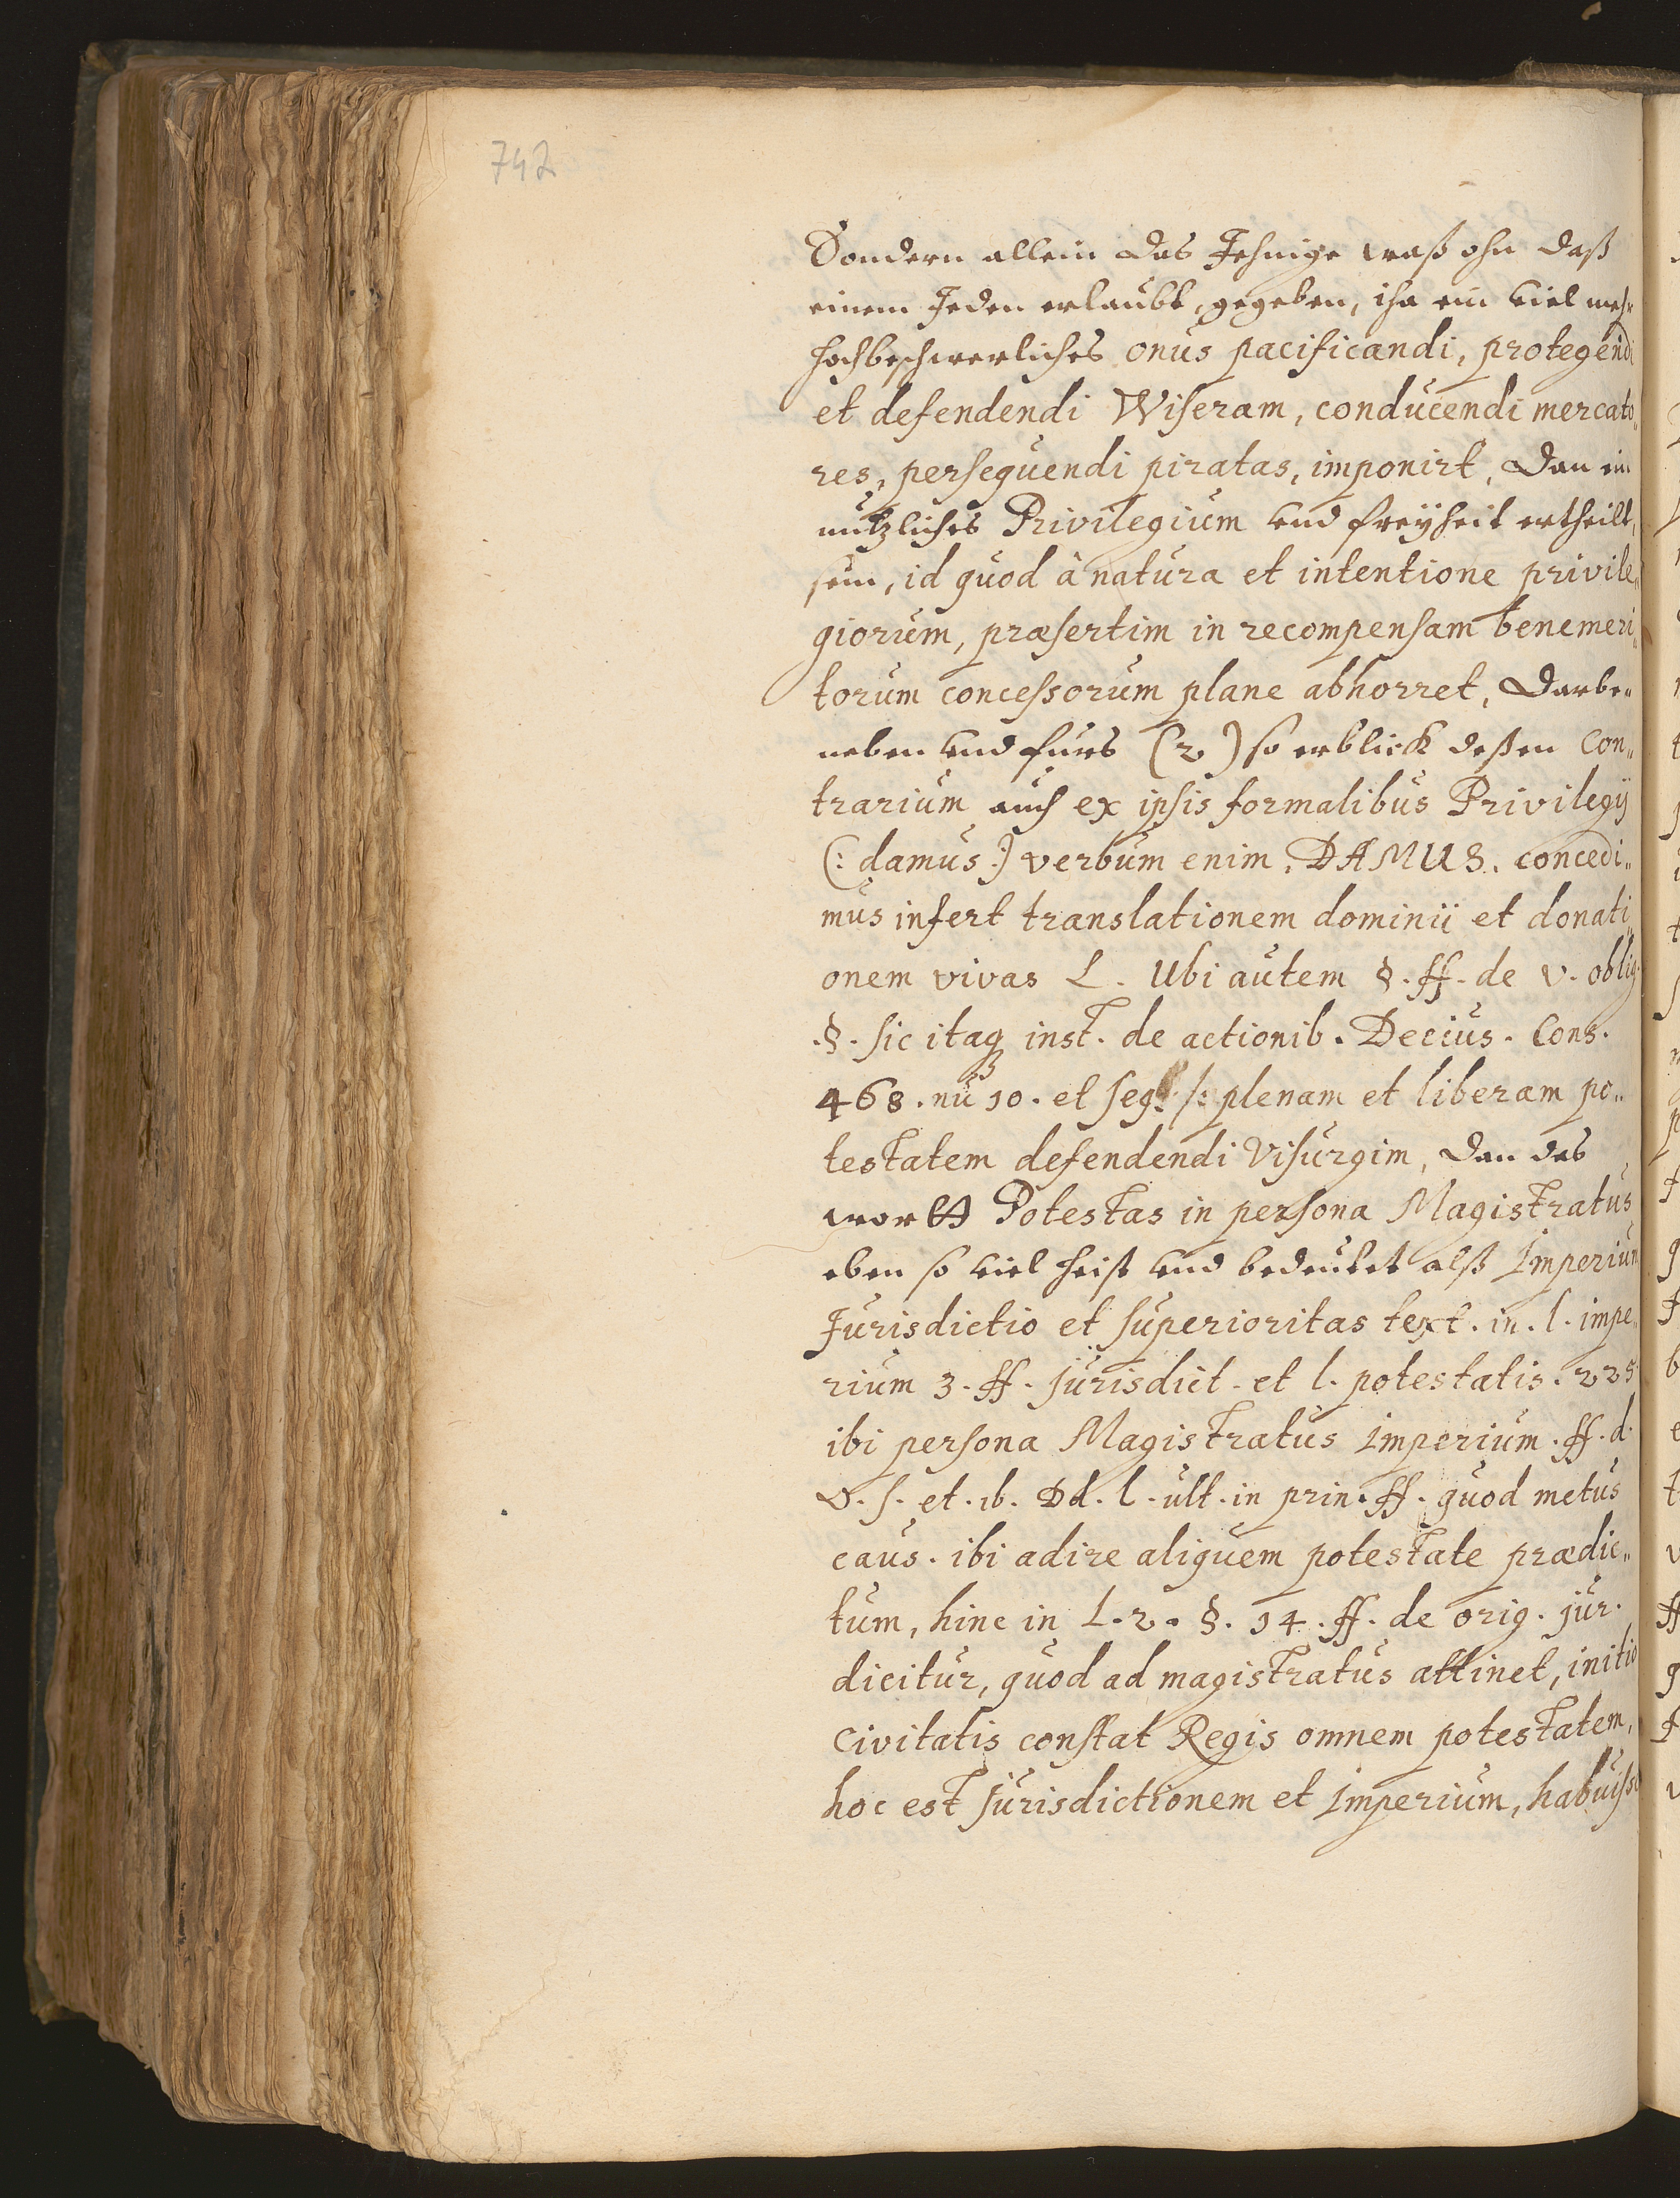 742
Sondern allein das Jehnige waß ohn daß
einem Jeden erlaubt, gegeben, iha ein viel mehr
hochbeschwerliches onus pacificandi, protegendi
et defendendi Wiseram, conducendi mercato„
res, persequendi piratas, imponirt, dan ein
nützliches Privilegium und freÿheit ertheilt,
sein, id quod à natura et intentione privile„
giorum, præsertim in recompensam benemeri„
torum concessorum plane abhorret, Darbe„
neben und fürs (2) so erblick deßen Con„
trarium auch ex ipsis formalibus Privilegÿ
(: damus :) verbum enim, DAMUS. concedi„
mus infert translationem dominii et donati„
onem vivas L. Ubi autem §. ff. de v. oblig.
§. sic itaq inst. de actionib. Decius. Cons.
468. nu 10. et seq. /: plenam et liberam po„
testatem defendendi Visurgim, dan das
wortt Potestas in persona Magistratus
eben so viel heist und bedeutet alß Imperium
Jurisdictio et superioritas text. in. l. impe„
rium 3. ff. jurisdict. et l. potestatis. 225
ibi persona Magistratus Imperium. ff. d.
v. s. et. ib. Dd. l. ult. in prin. ff. quod metus
caus. ibi adire aliquem potestate prædic„
tum, hinc in L. 2. §. 14. ff. de orig. jur.
dicitur, quod ad magistratus attinet, initio
Civitatis constat Regis omnem potestatem,
hoc est Jurisdictionem et Imperium, habuisse